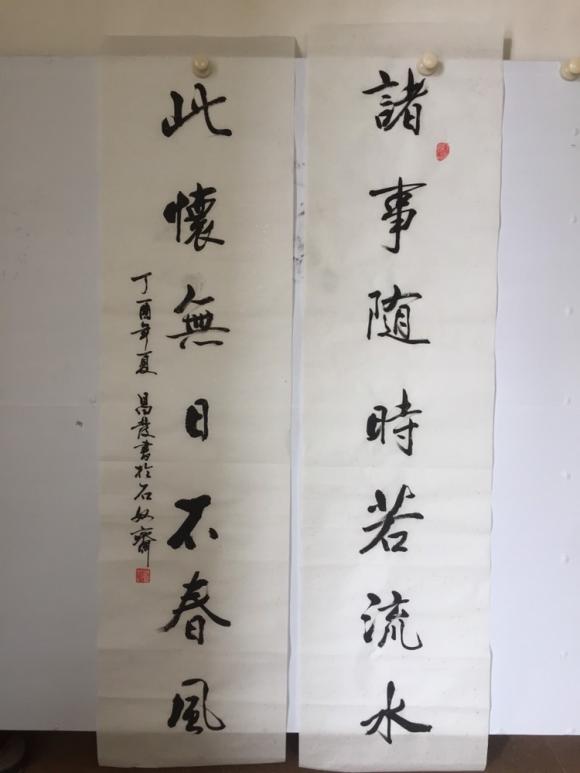 諸事随時若流水
此懷無日不春風
丁酉年夏 昌發書於石奴齋